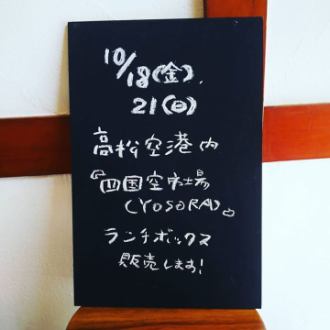 10/18(金).
21(日)
高松空港内
『四国空市場
(YOSORA)』
ランチボックス
販売します!